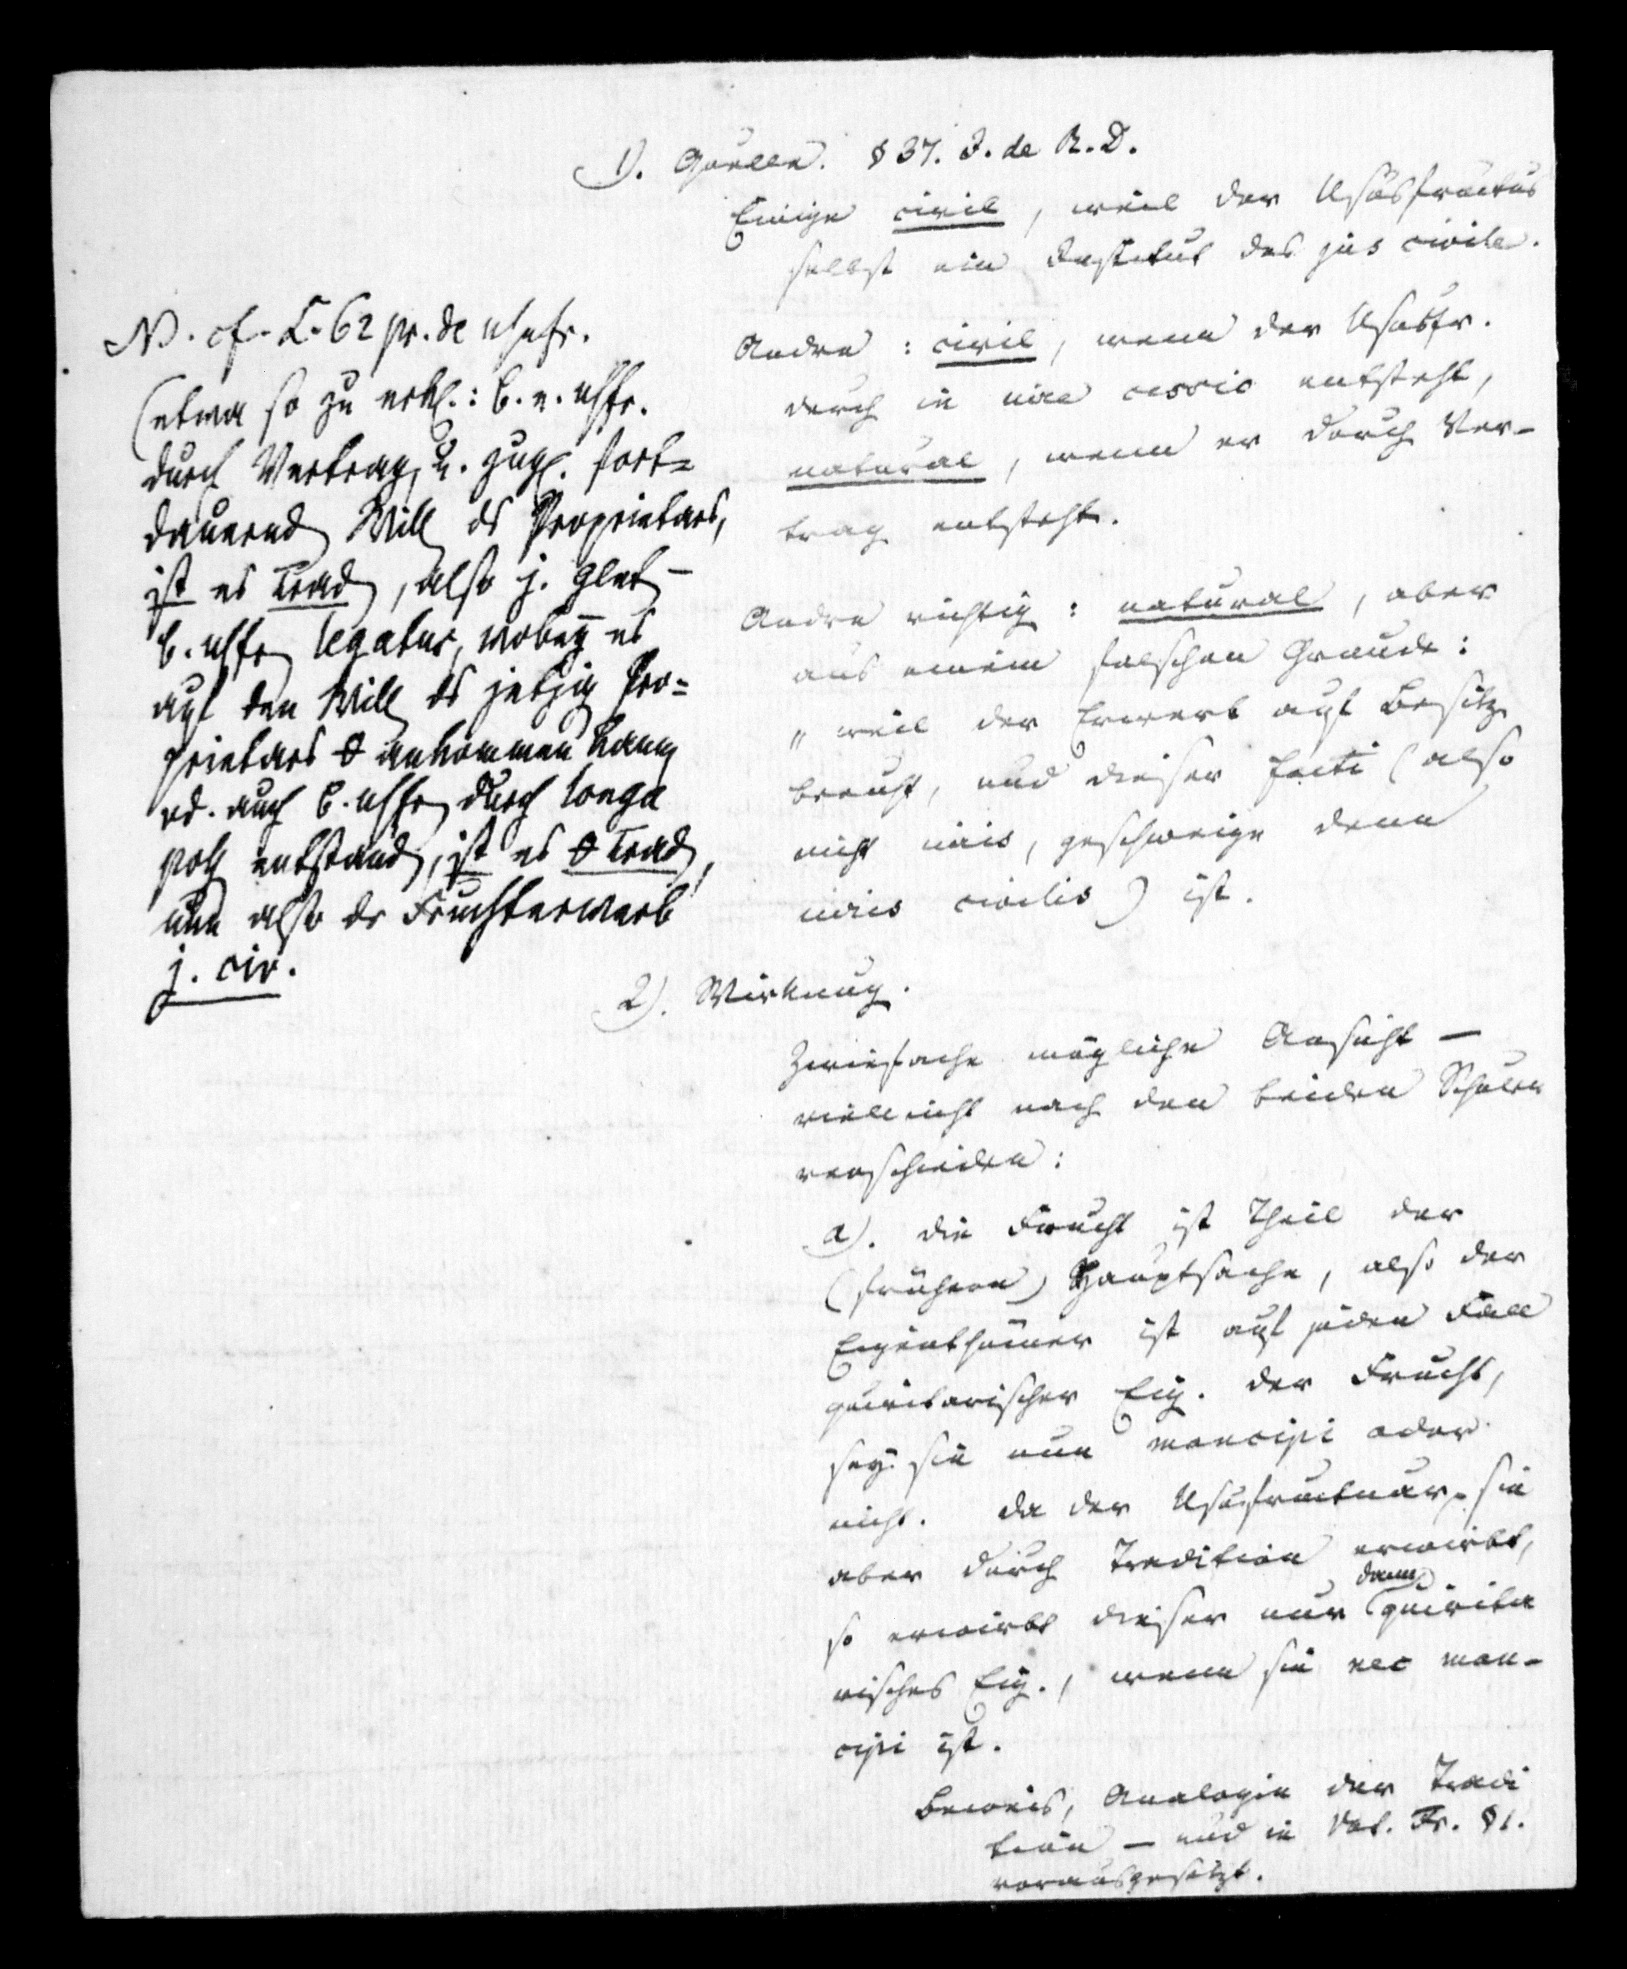 1). Quelle. § 37. I. de R. D.
Einige civil, weil der Ususfructus
selbst ein Institut des jus civile.
Andre: civil, wenn der Ususfr.
durch in iure cessio entsteht,
natural, wenn er durch Ver-
trag entsteht.
Andre richtig: natural, aber
aus einem falschen Grunde:
„weil der Erwerb auf Besitz
beruht, und dieser facti (also
nicht iuris, geschweige denn
iuris civilis) ist.
2). Wirkung.
Zwiefache mögliche Ansicht –
vielleicht nach den beiden Schulen
verschieden:
a). die Frucht ist Theil der
(frühern) Hauptsache, also der
Eigenthümer ist auf jeden Fall
quiritarischer Eig. der Frucht,
sey sie nun mancipi oder
nicht. Da der Ususfructuar sie
aber durch Tradition erwirbt,
so erwirbt dieser nur dann quirita
risches Eig., wenn sie nec man-
cipi ist.
Beweis, Analogie der Tradi
tion – und in Vat. Fr. § 1.
vorausgesetzt.
N. cf. L. 62 pr. de usufr.
(etwa so zu erkl.: b. e. usfr.
durch Vertrag, u. zugl. fort=
dauernd Will ds Proprietars,
ist es Trad, also j. –
b. usfr legatus, wobey es
auf den Will ds jetzig Pro=
prietars 0 ankommen kann
od. auch b. usfr durch longa
entstand, ist es 0 Trad,
nun also dr Fruchterwerb
j. civ.